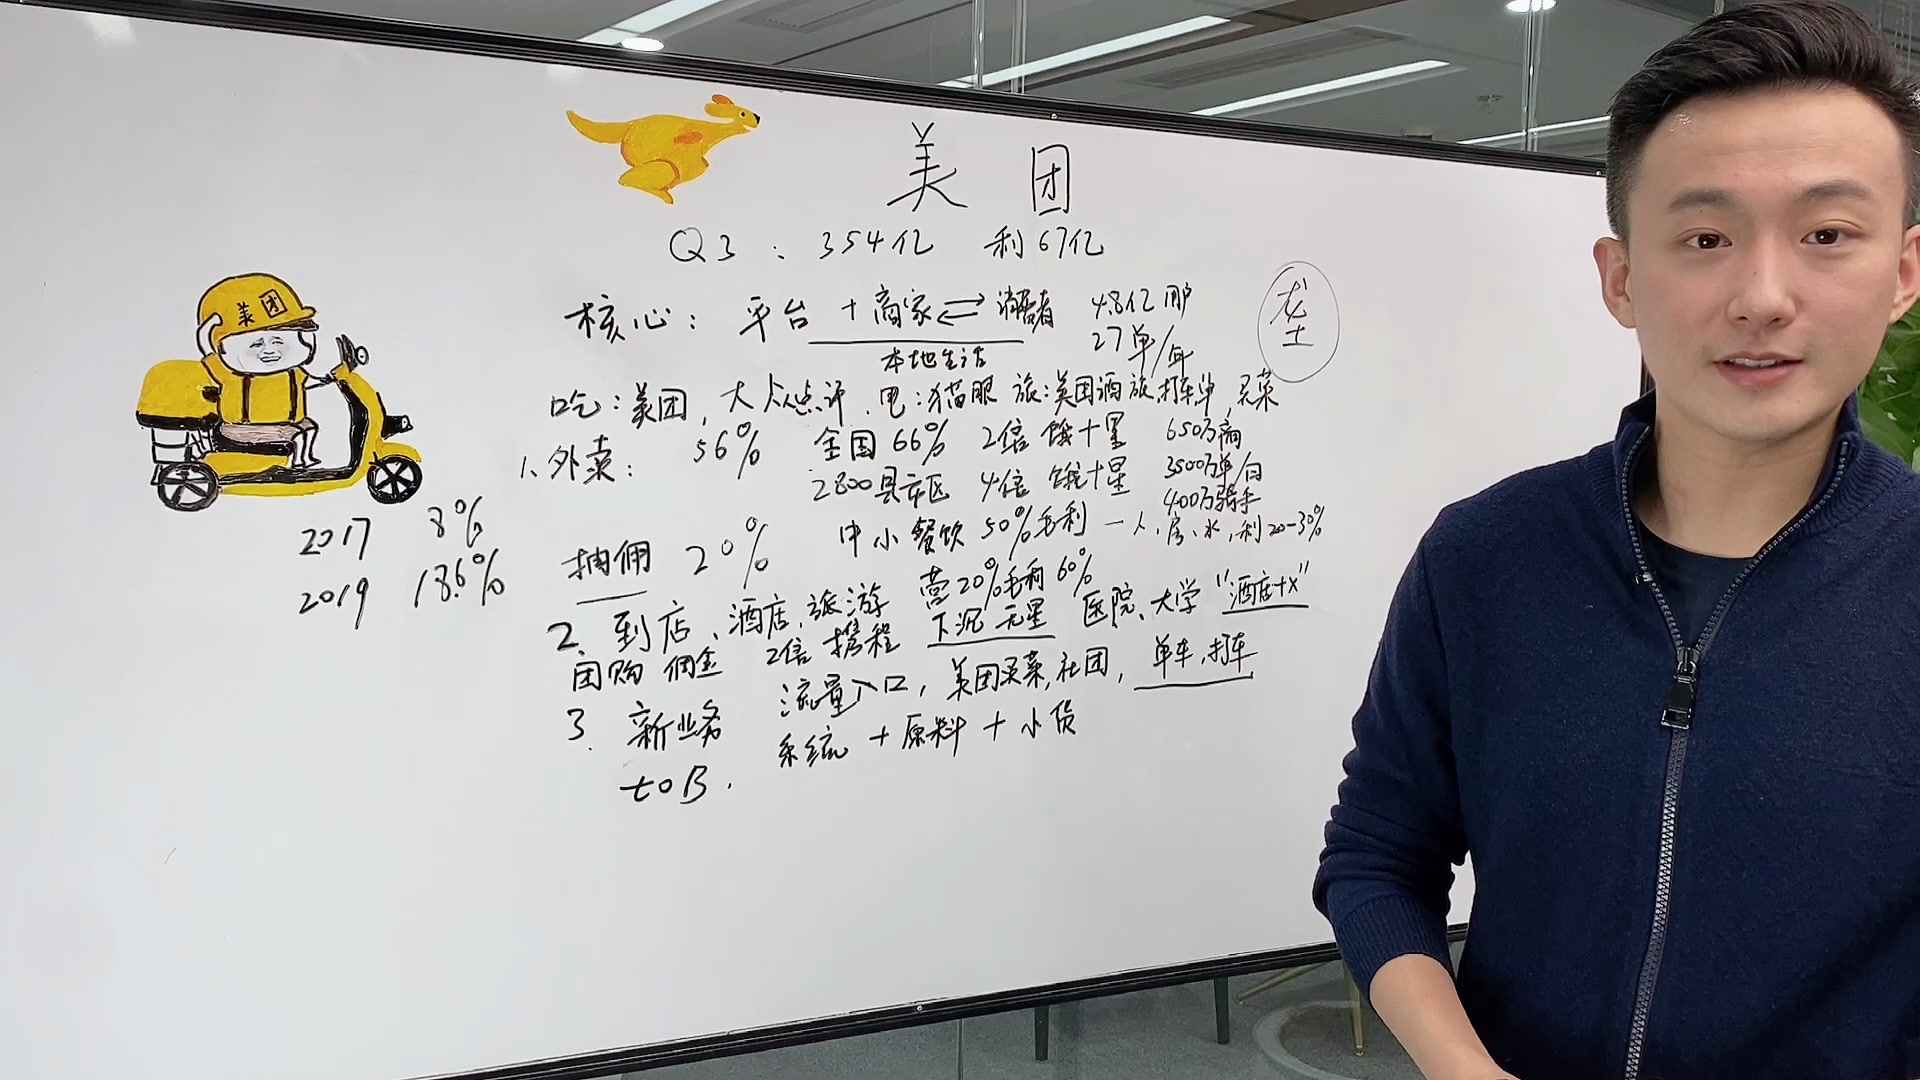 美团
Q3：354亿 利67亿
美团
核心：平台＋商家⇌消费者 4.8亿用户
本地生活
27单/年
垄
吃：美团，大众点评，电：猫眼 旅：美团酒旅，打车单，买菜
1、外卖：56% 全国66% 2倍饿＋星 650万商
2800县市区 4倍饿＋星 3500万单/日
400万骑手
2017 8%
2019 18.6%
抽佣 20% 中小餐饮50%毛利－人、房、水，利20-30%
2、到店、酒店、旅游 营20%毛利60%
团购 佣金 2倍携程 下沉无星 医院、大学 “酒店+x”
3、新业务 流量入口，美团买菜，社团，单车，打车
toB. 系统＋原料＋小贷